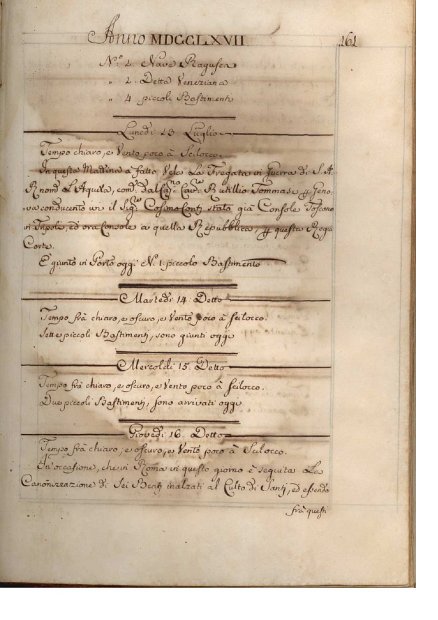 Anno MDCCLXVII
161
N.º 1. Nave Ragusea
" 1. Detta Veneziana
" 4. piccoli Bastimenti
Lunedì 13 Luglio
Tempo chiaro, e Vento poco à Scilocco
In questa Mattina à fatto Vela La Fregata in Guerra di S. A.
R. nom.ª L'Aquila, com.ta dal Cav.re Rutillio Tommasi p Geno-
va conducendo ivi il Sig.re Cosimo Conti stato già Console Toscano
in Tripoli, ed ora Console a quella Repubblica, p questa Regia
Corte.
È giunto in Porto oggi N.º 1. piccolo Bastimento
Martedì 14. Detto
Tempo frà chiaro, e oscuro, e Vento poco à Scilocco.
Sette piccoli Bastimenti, sono giunti oggi
Mercoldì 15. Detto
Tempo frà chiaro, e oscuro, e Vento poco à Scilocco.
Due piccoli Bastimenti, sono arrivati oggi
Giovedì 16. Detto
Tempo frà chiaro, e oscuro, e Vento poco à Scilocco.
In occasione, che in Roma in questo giorno è seguita La
Canonizzazione di Sei Beati inalzati al Culto di Santi, ed essendo
frà questi